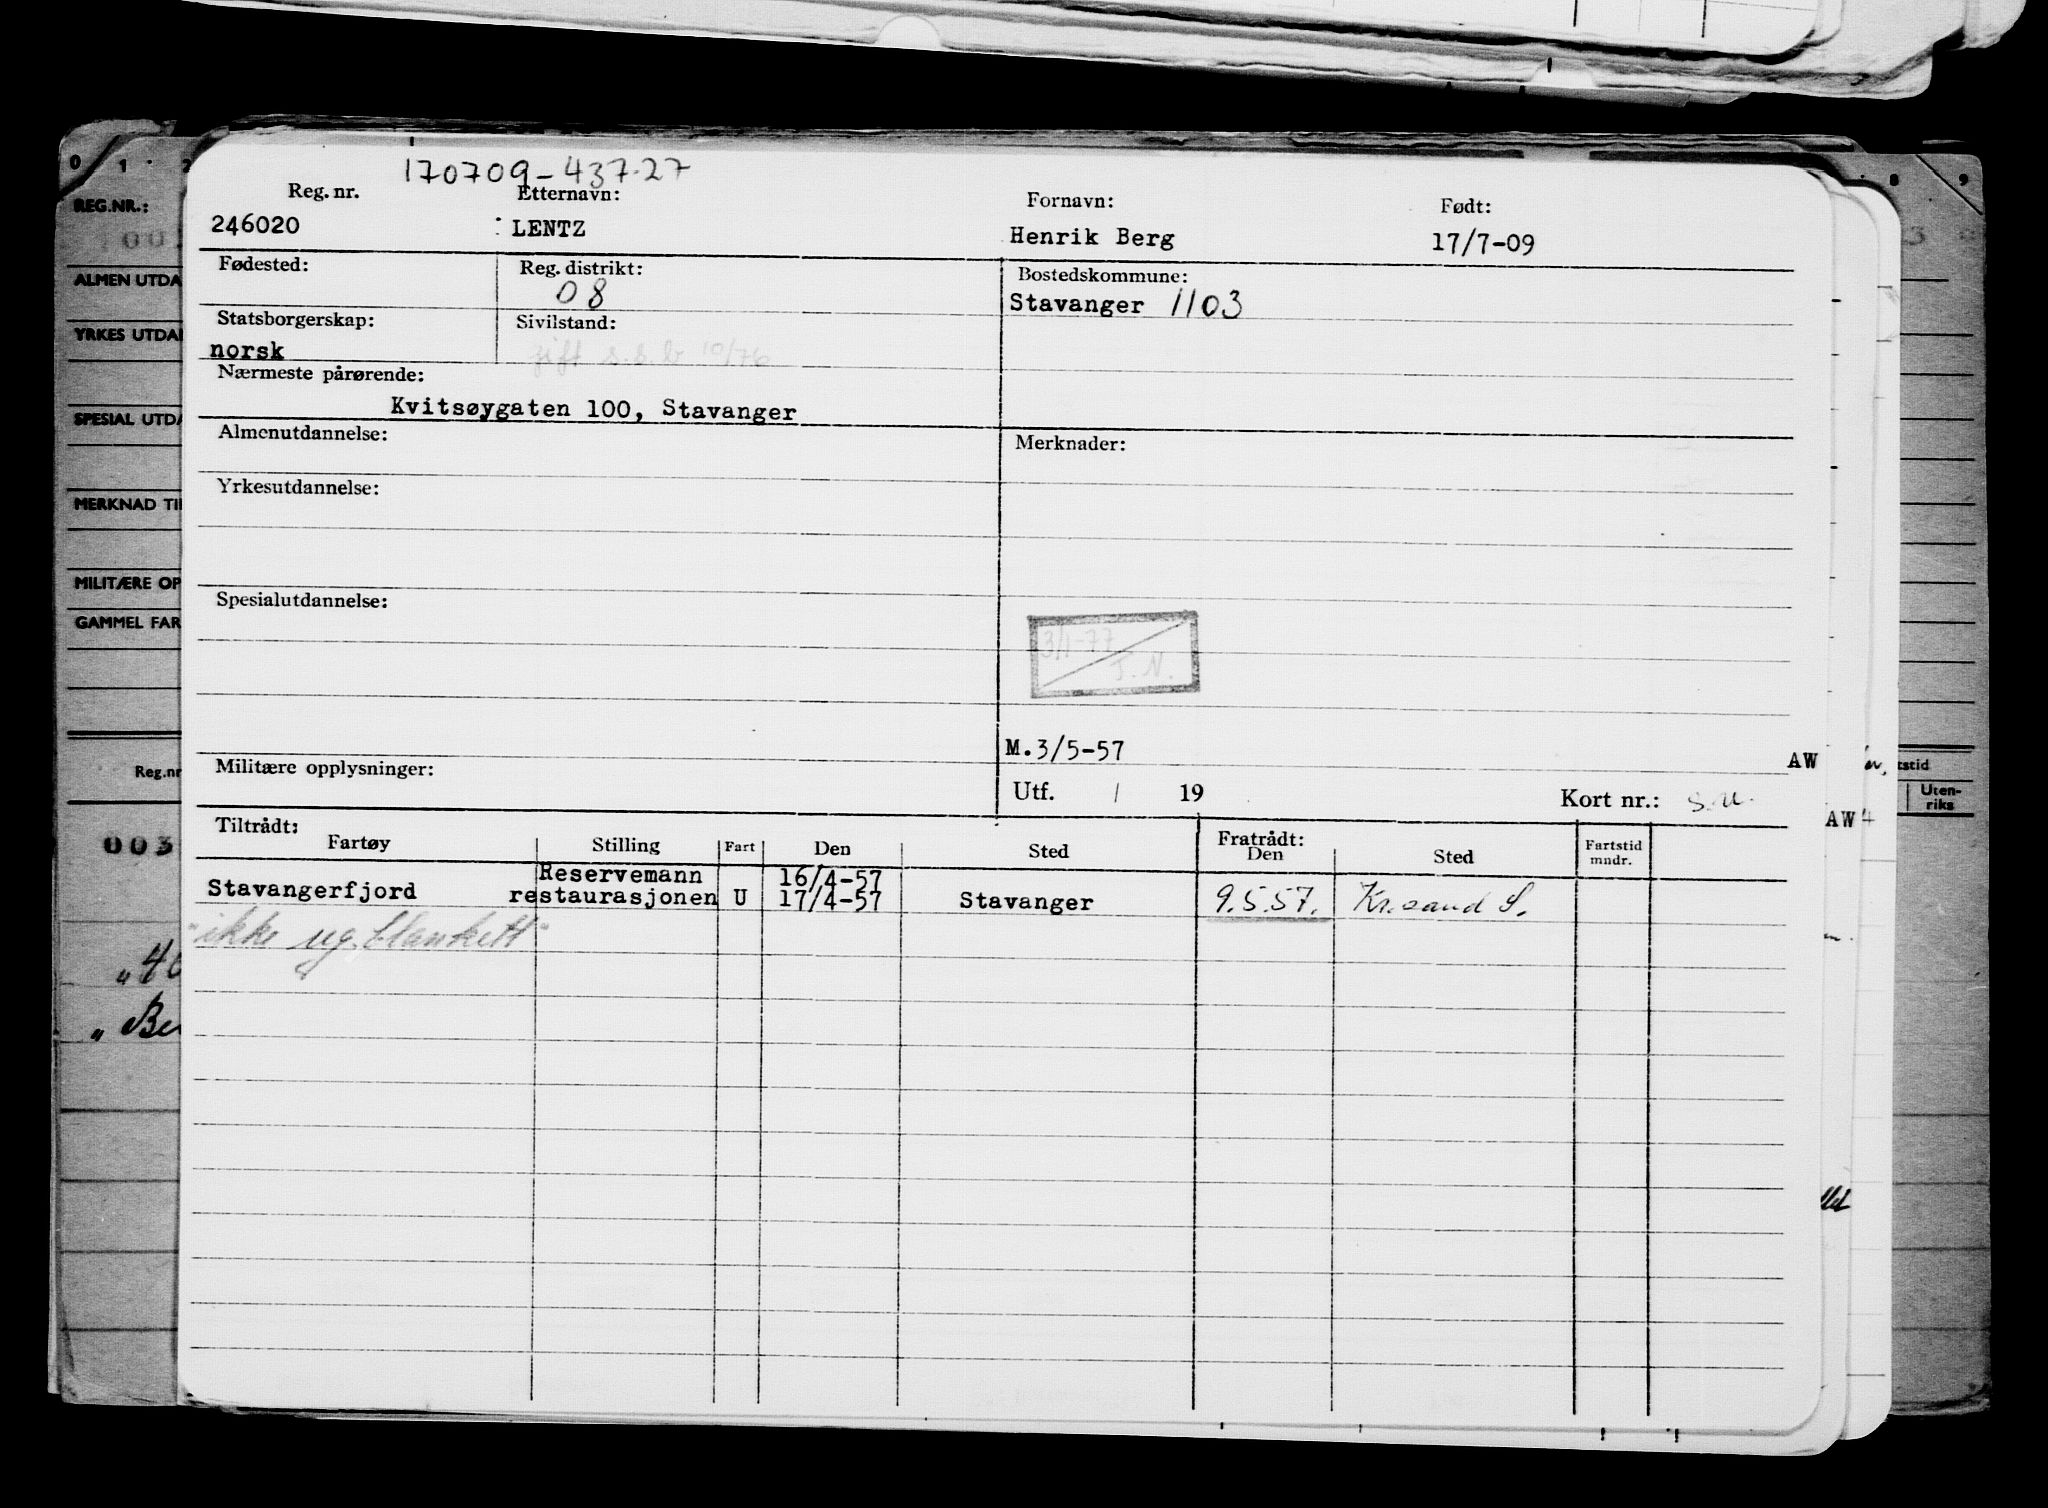 170709-437.27
Reg. nr. Etternavn: Fornavn: Født:
246020 LENTZ Henrik Berg 17/7-09
Fødested: Reg. distrikt: Bostedskommune:
08 Stavanger 1103
Statsborgerskap: Sivilstand:
norsk gift s.s.b 10/76
Nærmeste pårørende:
Kvitsøygaten 100, Stavanger
Almenutdannelse: Merknader:
Yrkesutdannelse:
Spesialutdannelse:
3/1-77
T.N.
M.3/5-57 AW
Militære opplysninger: Utf. / 19 Kort nr.: S.U.
Tiltrådt: Fratrådt:
Fartøy Stilling Fart Den Sted Den Sted Fartstid mndr.
Reservemann 16/4-57
Stavangerfjord restaurasjonen U 17/4-57 Stavanger 9.5.57. Kr.sand S.
"ikke reg. blankett"
0 1 2
REG.NR.:
ALMEN UTDA
YRKES UTDA
SPESIAL UTDA
MERKNAD TI
MILITÆRE OP
GAMMEL FAR
Reg.nr
003
8 9
tstid
Uten-
riks
AW 4